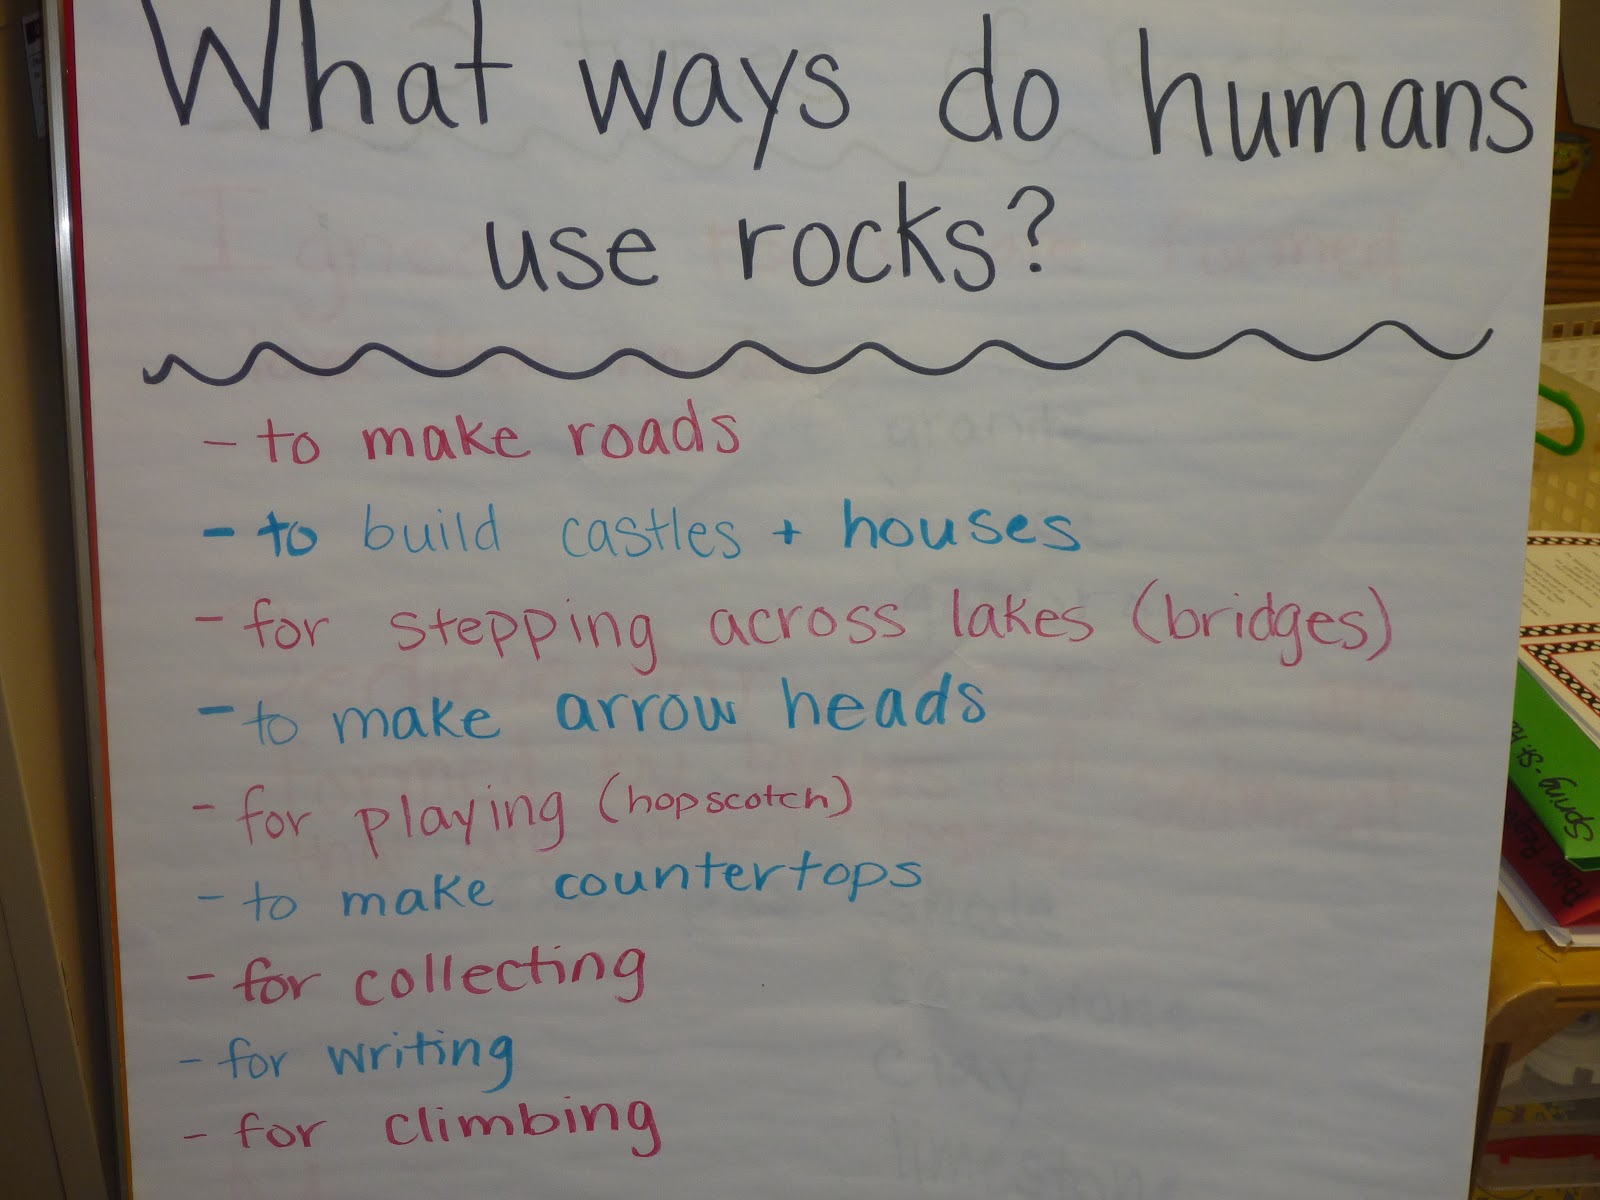 What ways do humans
use rocks?
- to make roads
- to build castles + houses
- for stepping across lakes (bridges)
- to make arrow heads
- for playing (hopscotch)
- to make countertops
- for collecting
- for writing
- for climbing
Spring - St.
Polar